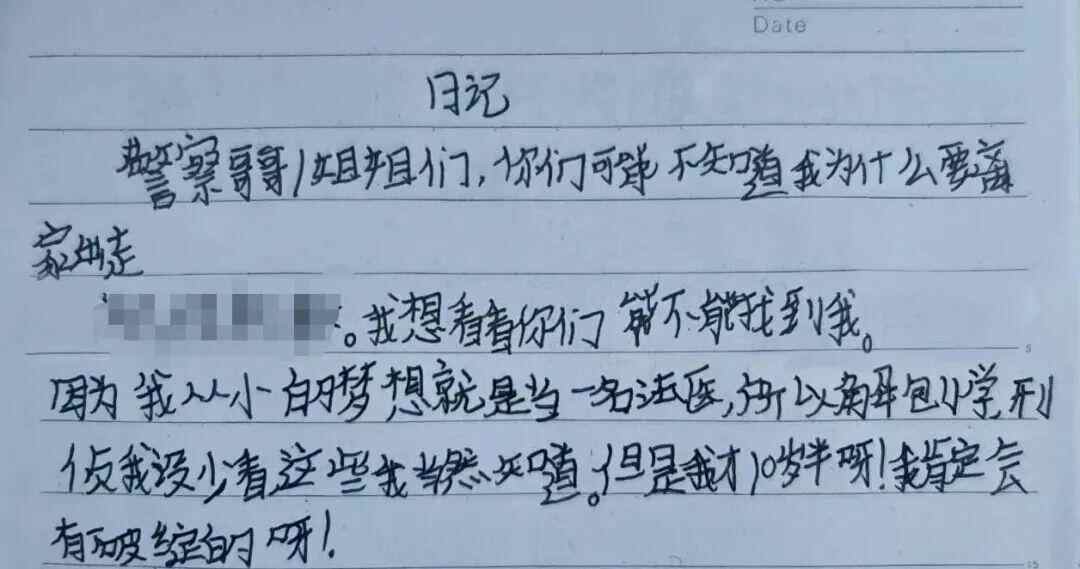 Date
日记
警察哥哥/姐姐们,你们可能不知道我为什么要离
家出走
。我想看看你们能不能找到我。
因为我从小的梦想就是当一名法医,所以解 包小学刑
侦我没少看这些我当然知道。但是我才10岁半呀!我肯定会
有破绽的呀!